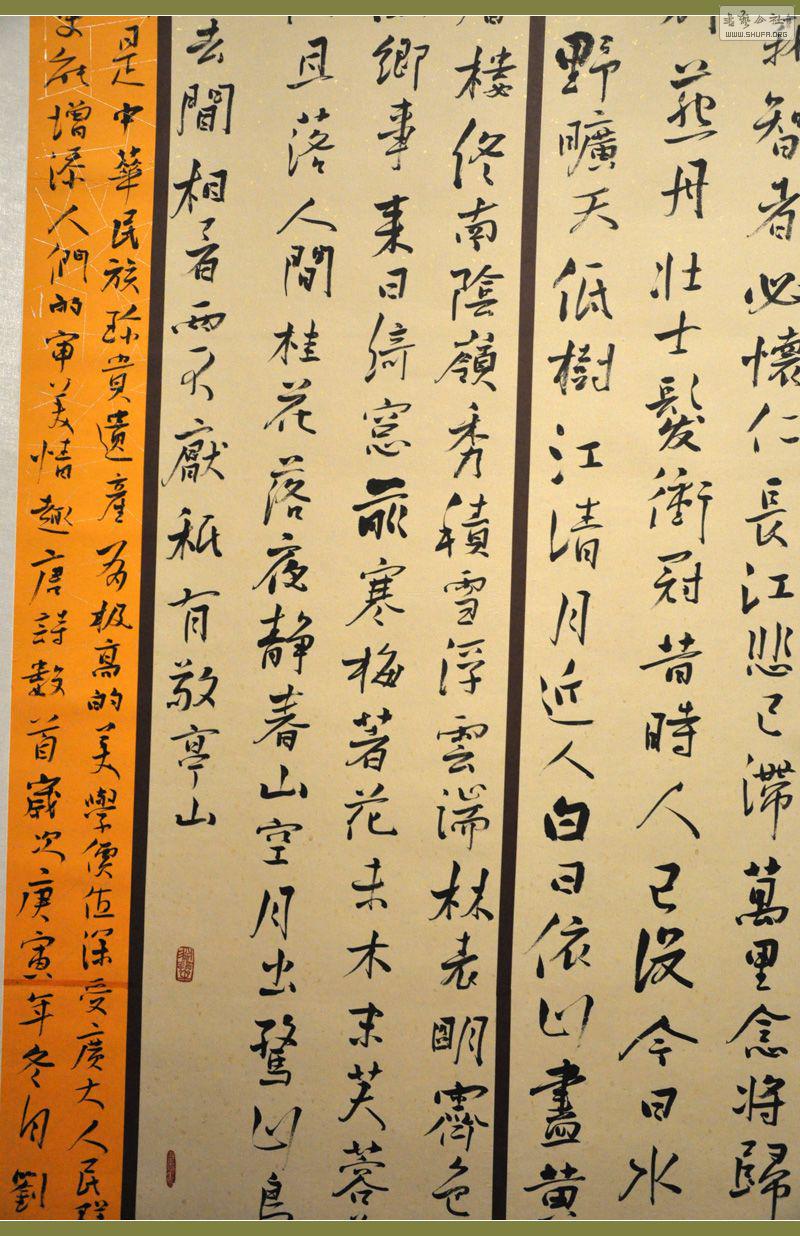 書藝公社
WWW.SHUFA.ORG
智者必懷仁長江悲已滯萬里念將歸
燕丹壯士髮衝冠昔時人已没今日水
野曠天低樹江清月近人白日依山盡黄
樓終南陰嶺秀積雪浮雲端林表明霽色
鄉事来日綺窓前寒梅著花未木末芙蓉
且落人間桂花落夜静春山空月出驚山鳥
去閒相看两不厭秖有敬亭山
是中華民族珍貴遺產極高的美學價值深受廣大人民群
增添人們的审美情趣唐詩数首歲次庚寅年冬月劉